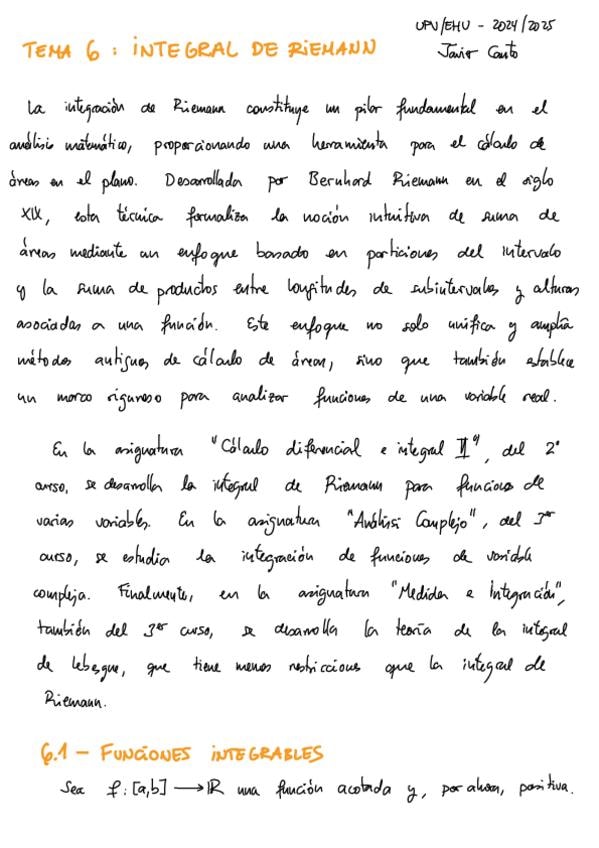 UPV/EHU - 2024/2025
TEMA 6 : INTEGRAL DE RIEMANN
Javier Canto
La integración de Riemann constituye un pilar fundamental en el
análisis matemático, proporcionando una herramienta para el cálculo de
áreas en el plano. Desarrollada por Bernhard Riemann en el siglo
XIX, esta técnica formaliza la noción intuitiva de suma de
áreas mediante un enfoque basado en particiones del intervalo
y la suma de productos entre longitudes de subintervalos y alturas
asociadas a una función. Este enfoque no solo unifica y amplía
métodos antiguos de cálculo de áreas, sino que también establece
un marco riguroso para analizar funciones de una variable real.
En la asignatura "Cálculo diferencial e integral II", del 2º
curso, se desarrolla la integral de Riemann para funciones de
varias variables. En la asignatura "Análisis Complejo", del 3er
curso, se estudia la integración de funciones de variable
compleja. Finalmente, en la asignatura "Medida e Integración",
también del 3er curso, se desarrolla la teoría de la integral
de Lebesgue, que tiene menos restricciones que la integral de
Riemann.
6.1 - FUNCIONES INTEGRABLES
Sea f: [a,b] → ℝ una función acotada y, por ahora, positiva.